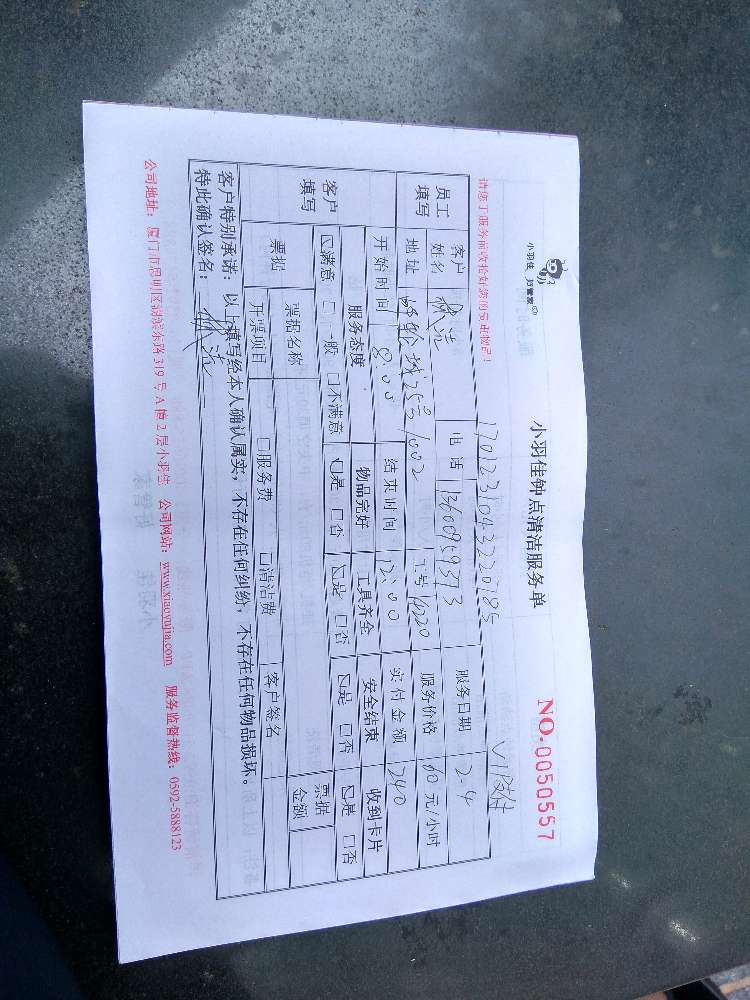 小羽佳 好管家
小羽佳钟点清洁服务单
NO.0050557
请您于服务前收拾好您的贵重物品！
17022310432220185
VIP支付
员工填写
客户姓名
电话 13600959373
服务日期 2-4
地址
25号1002
工号 10220
服务价格 60 元/小时
开始时间 8:00
结束时间 12:00
实付金额 240
客户填写
服务态度 物品完好 工具齐全 安全结束 收到卡片
☑满意 □一般 □不满意 ☑是 □否 ☑是 □否 ☑是 □否 ☑是 □否
票据
票据名称
票据金额
开票项目 □服务费 □清洁费 客户签名
客户特别承诺：以上填写经本人确认属实，不存在任何纠纷，不存在任何物品损坏。
特此确认签名：
公司地址：厦门市思明区湖滨东路319号A幢2层小羽佳 公司网站：www.xiaoyujia.com 服务监督热线：0592-5888123